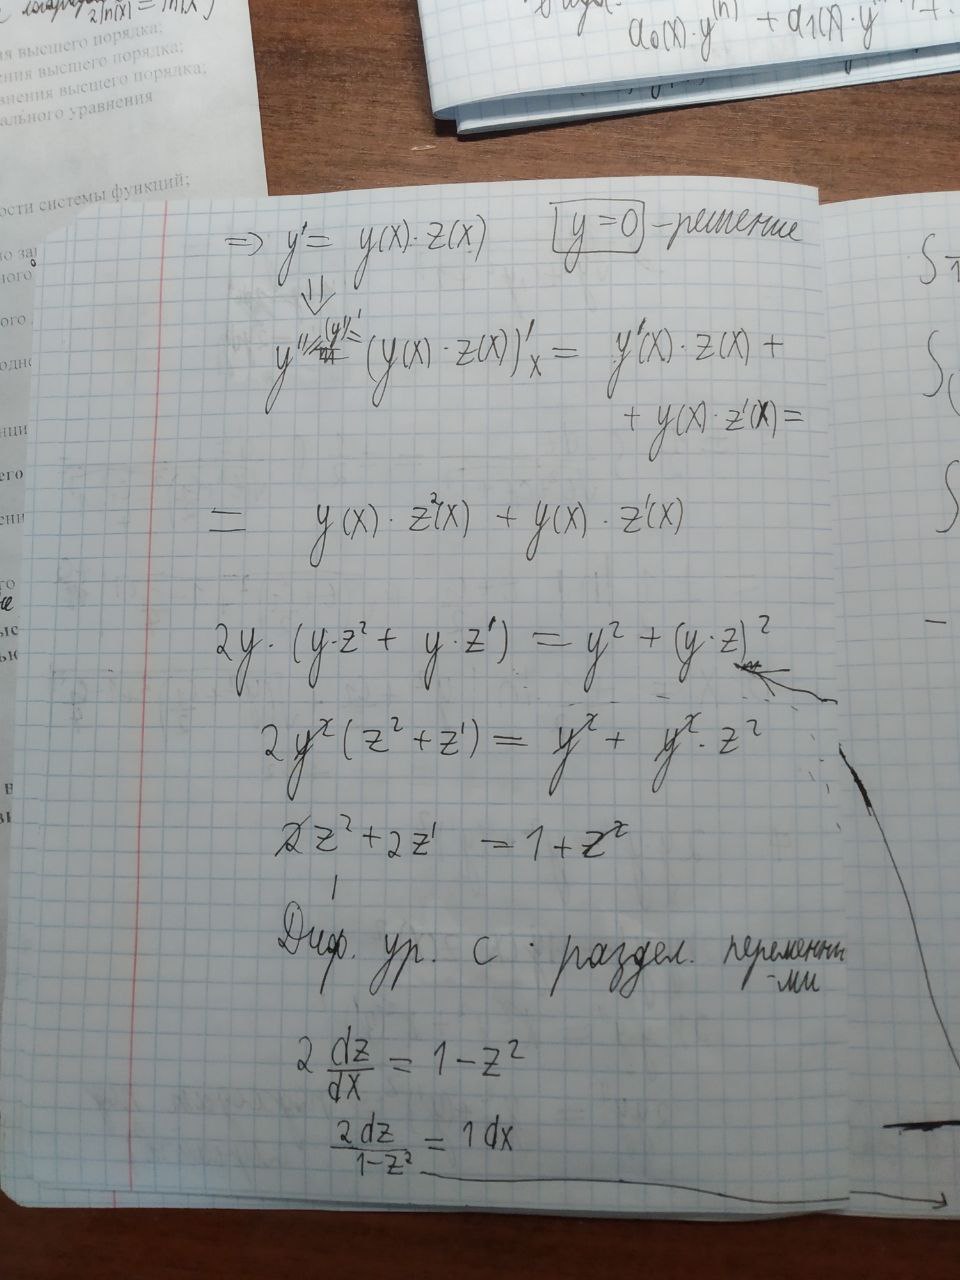 2ln(x) = ln(x)
ия высшего порядка;
ения высшего порядка;
внения высшего порядка;
ального уравнения
ости системы функций;
a₀(x)·y⁽ⁿ⁾ + a₁(x)·y
=> y' = y(x)·z(x) y=0 -решение
⇓
y'' = (y')' = (y(x)·z(x))'ₓ = y'(x)·z(x) +
+ y(x)·z'(x) =
= y(x)·z²(x) + y(x)·z'(x)
2y·(y·z² + y·z') = y² + (y·z)²
2y²(z² + z') = y² + y²·z²
2z² + 2z' = 1 + z²
Диф. ур. с раздел. переменны
-ми
2 dz/dx = 1 - z²
2dz/(1-z²) = 1dx